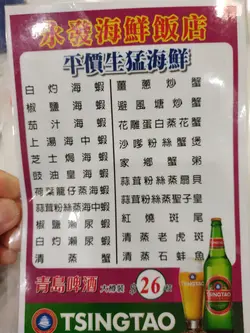 永發海鮮飯店
平價生猛海鮮
白灼海蝦
椒鹽海蝦
茄汁海蝦
上湯海中蝦
芝士焗海蝦
豉油皇海蝦
荷葉籠仔蒸海蝦
蒜茸粉絲蒸海中蝦
椒鹽瀨尿蝦
白灼瀨尿蝦
清蒸海蝦
薑蔥炒蟹
避風塘炒蟹
花雕蛋白蒸花蟹
沙嗲粉絲蟹煲
家鄉蟹粥
蒜茸粉絲蒸扇貝
蒜茸粉絲蒸聖子皇
紅燒斑尾
清蒸老虎斑
清蒸
青島啤酒 大樽裝 $26
TSINGTAO
TSINGTAO